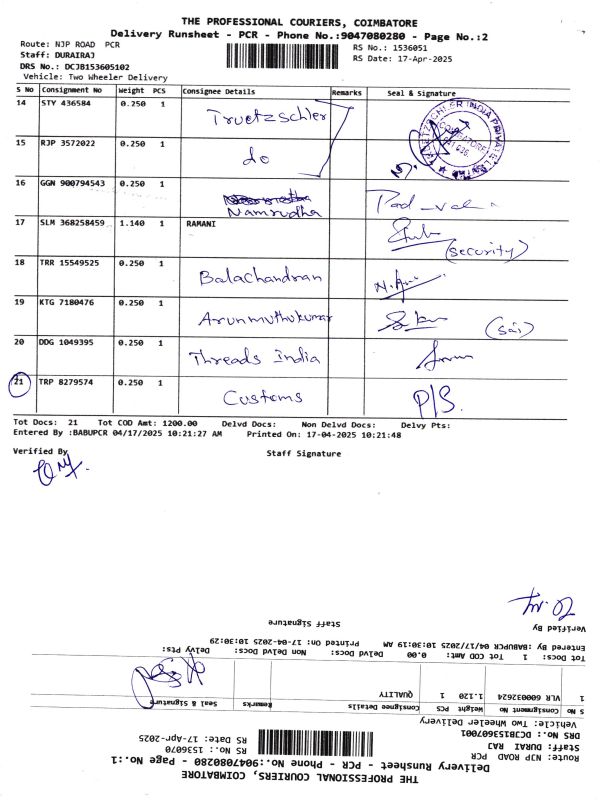 THE PROFESSIONAL COURIERS, COIMBATORE
Delivery Runsheet - PCR - Phone No.:9047080280 - Page No.:2
Route: NJP ROAD PCR
Staff: DURAIRAJ
DRS No.: DCJB153605102
Vehicle: Two Wheeler Delivery
RS No.: 1536051
RS Date: 17-Apr-2025
S No Consignment No Weight PCS Consignee Details Remarks Seal & Signature
14 STY 436584 0.250 1 Truetzschler
15 RJP 3572022 0.250 1 do
16 GGN 900794543 0.250 1 Namrudha
17 SLM 368258459 1.140 1 RAMANI (security)
18 TRR 15549525 0.250 1 Balachandran
19 KTG 7180476 0.250 1 Arunmuthukumar (sai)
20 DDG 1049395 0.250 1 Threads India
21 TRP 8279574 0.250 1 Customs P/S.
Tot Docs: 21 Tot COD Amt: 1200.00 Delvd Docs: Non Delvd Docs: Delvy Pts:
Entered By :BABUPCR 04/17/2025 10:21:27 AM Printed On: 17-04-2025 10:21:48
Verified By Staff Signature
THE PROFESSIONAL COURIERS, COIMBATORE
Delivery Runsheet - PCR - Phone No.:9047080280 - Page No.:1
Route: NJP ROAD PCR
Staff: DURAI RAJ
DRS No.: DCJB153607001
Vehicle: Two Wheeler Delivery
RS No.: 1536070
RS Date: 17-Apr-2025
S No Consignment No Weight PCS Consignee Details Remarks Seal & Signature
1 VLR 600032624 1.120 1 QUALITY
Tot Docs: 1 Tot COD Amt: 0.00 Delvd Docs: Non Delvd Docs: Delvy Pts:
Entered By :BABUPCR 04/17/2025 10:30:19 AM Printed On: 17-04-2025 10:30:29
Verified By Staff Signature